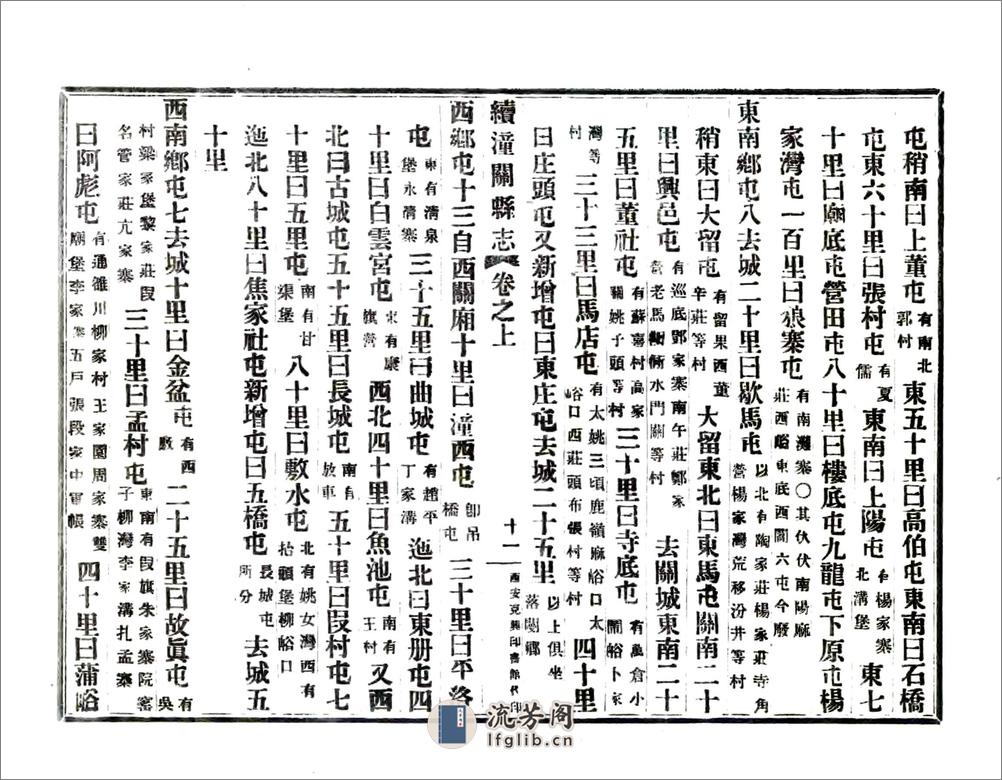 屯稍南曰上董屯有南北郭村東五十里曰高伯屯東南曰石橋
屯東六十里曰張村屯有夏儒東南曰上陽屯有楊家寨北溝堡東七
十里曰廟底屯營田屯八十里曰樓底屯九龍屯下原屯楊
家灣屯一百里曰狼寨屯有南灘寨〇其伙伏南陽麻莊西峪東底西閻六屯今廢
東南鄉屯八去城二十里曰歇馬屯以北有陶家莊楊家莊寺角營楊家灣荒移汾井等村
稍東曰大留屯有留果西董辛莊等村大留東北曰東馬屯關南二十
里曰興邑屯有巡底鄧家寨南午莊鄭家營老馬衝衕水門關等村去關城東南二十
五里曰董社屯有蘇家村高家關姚子頭等村三十里曰寺底屯有萬倉小關峪卜家
灣等村三十三里曰馬店屯有太姚三頃鹿嶺麻峪口太峪口西莊頭布張村等村四十里
曰庄頭屯又新增屯曰東庄屯去城二十五里以上俱坐落閿鄉
續潼關縣志 卷之上 十一 西安克興印書館代印
西鄉屯十三自西關廂十里曰潼西屯卽吊橋屯三十里曰平洛
屯東有淸泉堡永淸寨三十五里曰曲城屯有趙平丁家溝迤北曰東册屯四
十里曰白雲宮屯東有康旗營西北四十里曰魚池屯南有王村又西
北曰古城屯五十五里曰長城屯南有放車五十里曰叚村屯七
十里曰五里屯南有甘渠堡八十里曰敷水屯北有姚女灣西有抬頭堡柳峪口
迤北八十里曰焦家社屯新增屯曰五橋屯長城屯所分去城五
十里
西南鄉屯七去城十里曰金盆屯有西敷二十五里曰故眞屯有吳
村梁家堡黎家莊叚名管家莊亢家寨三十里曰孟村屯東南有叚旗朱家寨院窰子柳灣李家溝扎孟寨
曰阿彪屯有通雒川柳家村王家園周家寨雙廟堡李家寨五戶張段家中軍帳四十里曰蒲峪
流芳阁
lfglib.cn